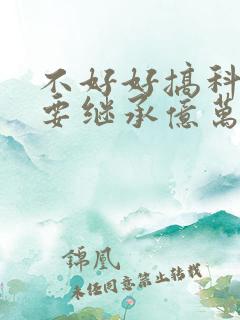 不好好搞科
要继承億萬
錦凰
未经同意禁止转载